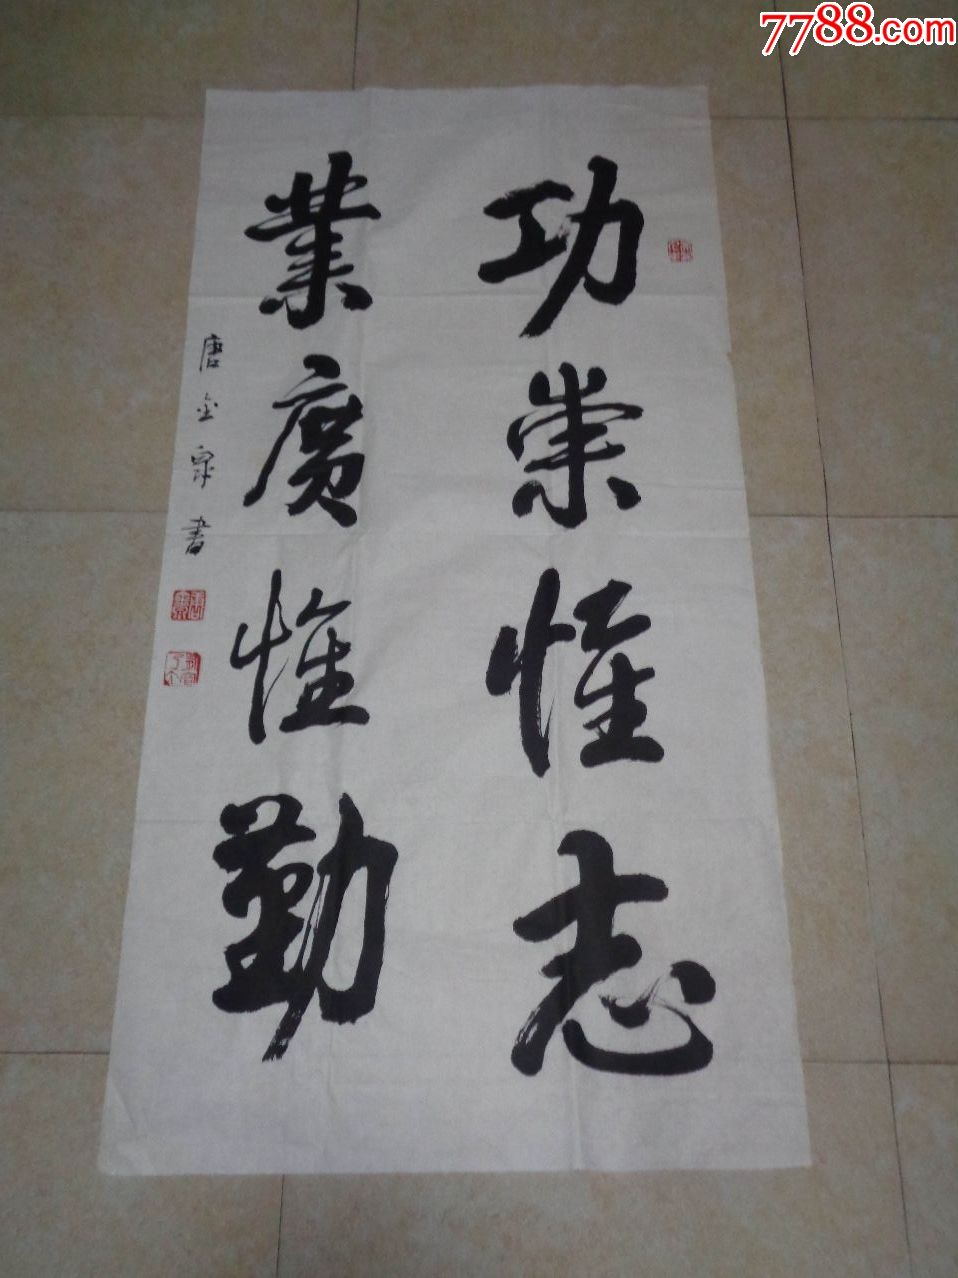 7788.com
功崇惟志
業廣惟勤
唐金泉書